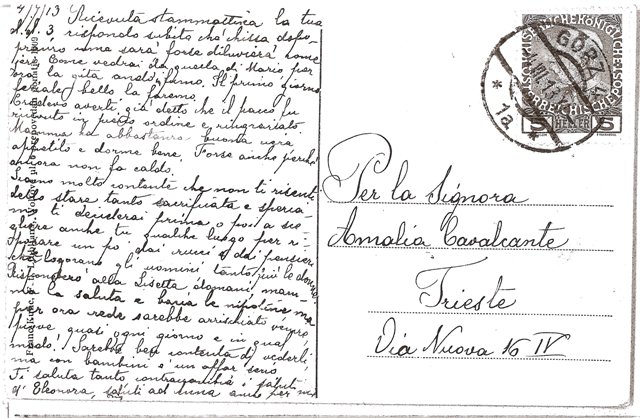 4/7/13 Ricevuta stammattina la tua
d. d. 3, rispondo subito, chè chissà dopo
pranzo come sarà forse diluvierà come
jeri. Come vedrai da quella di Mario, per
ora la gita andò in fumo. Il primo giorno
festale bello la faremo.
Credevo averti già detto che il pacco fu
ricevuto in pieno ordine e ringraziato.
Mamma ha abbastanza buona cera
appetito e dorme bene. Forse anche perchè
ancora non fa caldo.
Siamo molto contente che non ti risenti
dello stare tanto sacrificata e speria-
mo ti deciderai prima o poi a sce-
gliere anche tu qualche luogo per ri-
posare un po' dai e dai pensieri
che logorano gli uomini tanto più le donne.
Risponderò alla Lisetta domani, mam-
ma la saluta e bacia le nipotine ma
per ora sarebbe arrischiato venire,
piove quasi ogni giorno e in qual
modo! Sarebbe ben contenta di vederli,
ma con bambini è un affar serio
Ti saluta tanto contraccambia i saluti
d' Eleonora, saluti ad Anna anche per me
GÖRZ
1a
5 HELLER 5
Per la Signora
Amalia Cavalcante
Trieste
Via Nuova 16 IV